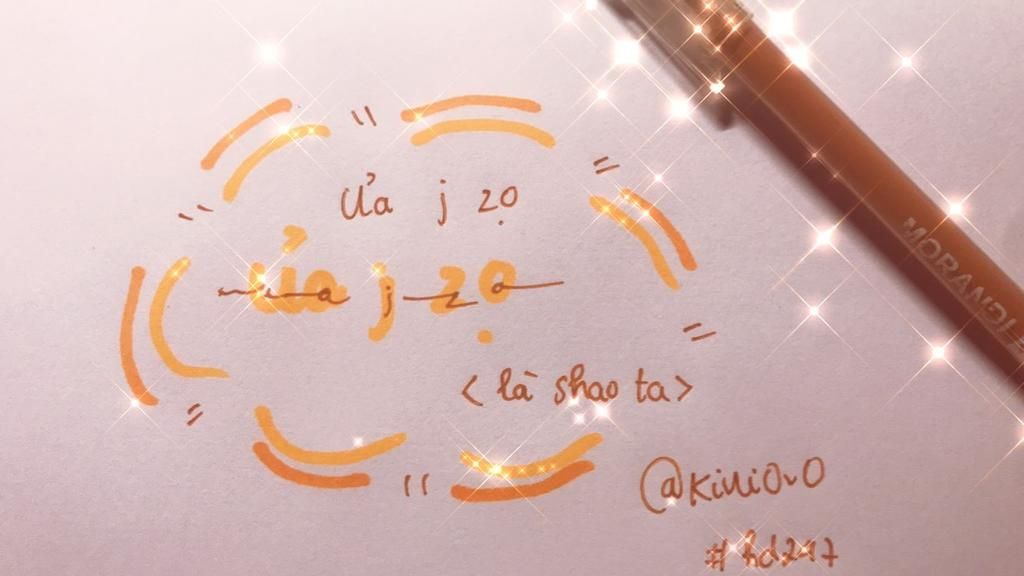 Ưa j zọ
Ưa j zọ
<là shao ta>
@KiNiOvO
#hd247
MORANDI